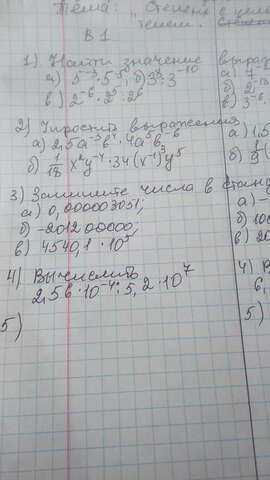 Тема: "Степень с целым
показ
В 1
1) Найти значение выраж
а) 5⁻³·5⁵; б) 3⁸:3⁻¹⁰
в) 2⁻⁶·2⁵:2⁶
2) Упростить выражения
а) 2,5a⁻³b⁴·4a⁵b⁻⁶
б) 1/18 x²y⁻⁴·34(x⁻¹)³y⁵
3) Запишите числа в станд
а) 0,000003051;
б) -201200000;
в) 4540,1·10⁵
4) Вычислить
2,56·10⁻⁴:5,2·10⁷
5)
а) 7
б) 2
в) 3⁻⁶
а) 1,5
б) 1/9
а) -
б) 100
в) 20
4) В
6,
5)